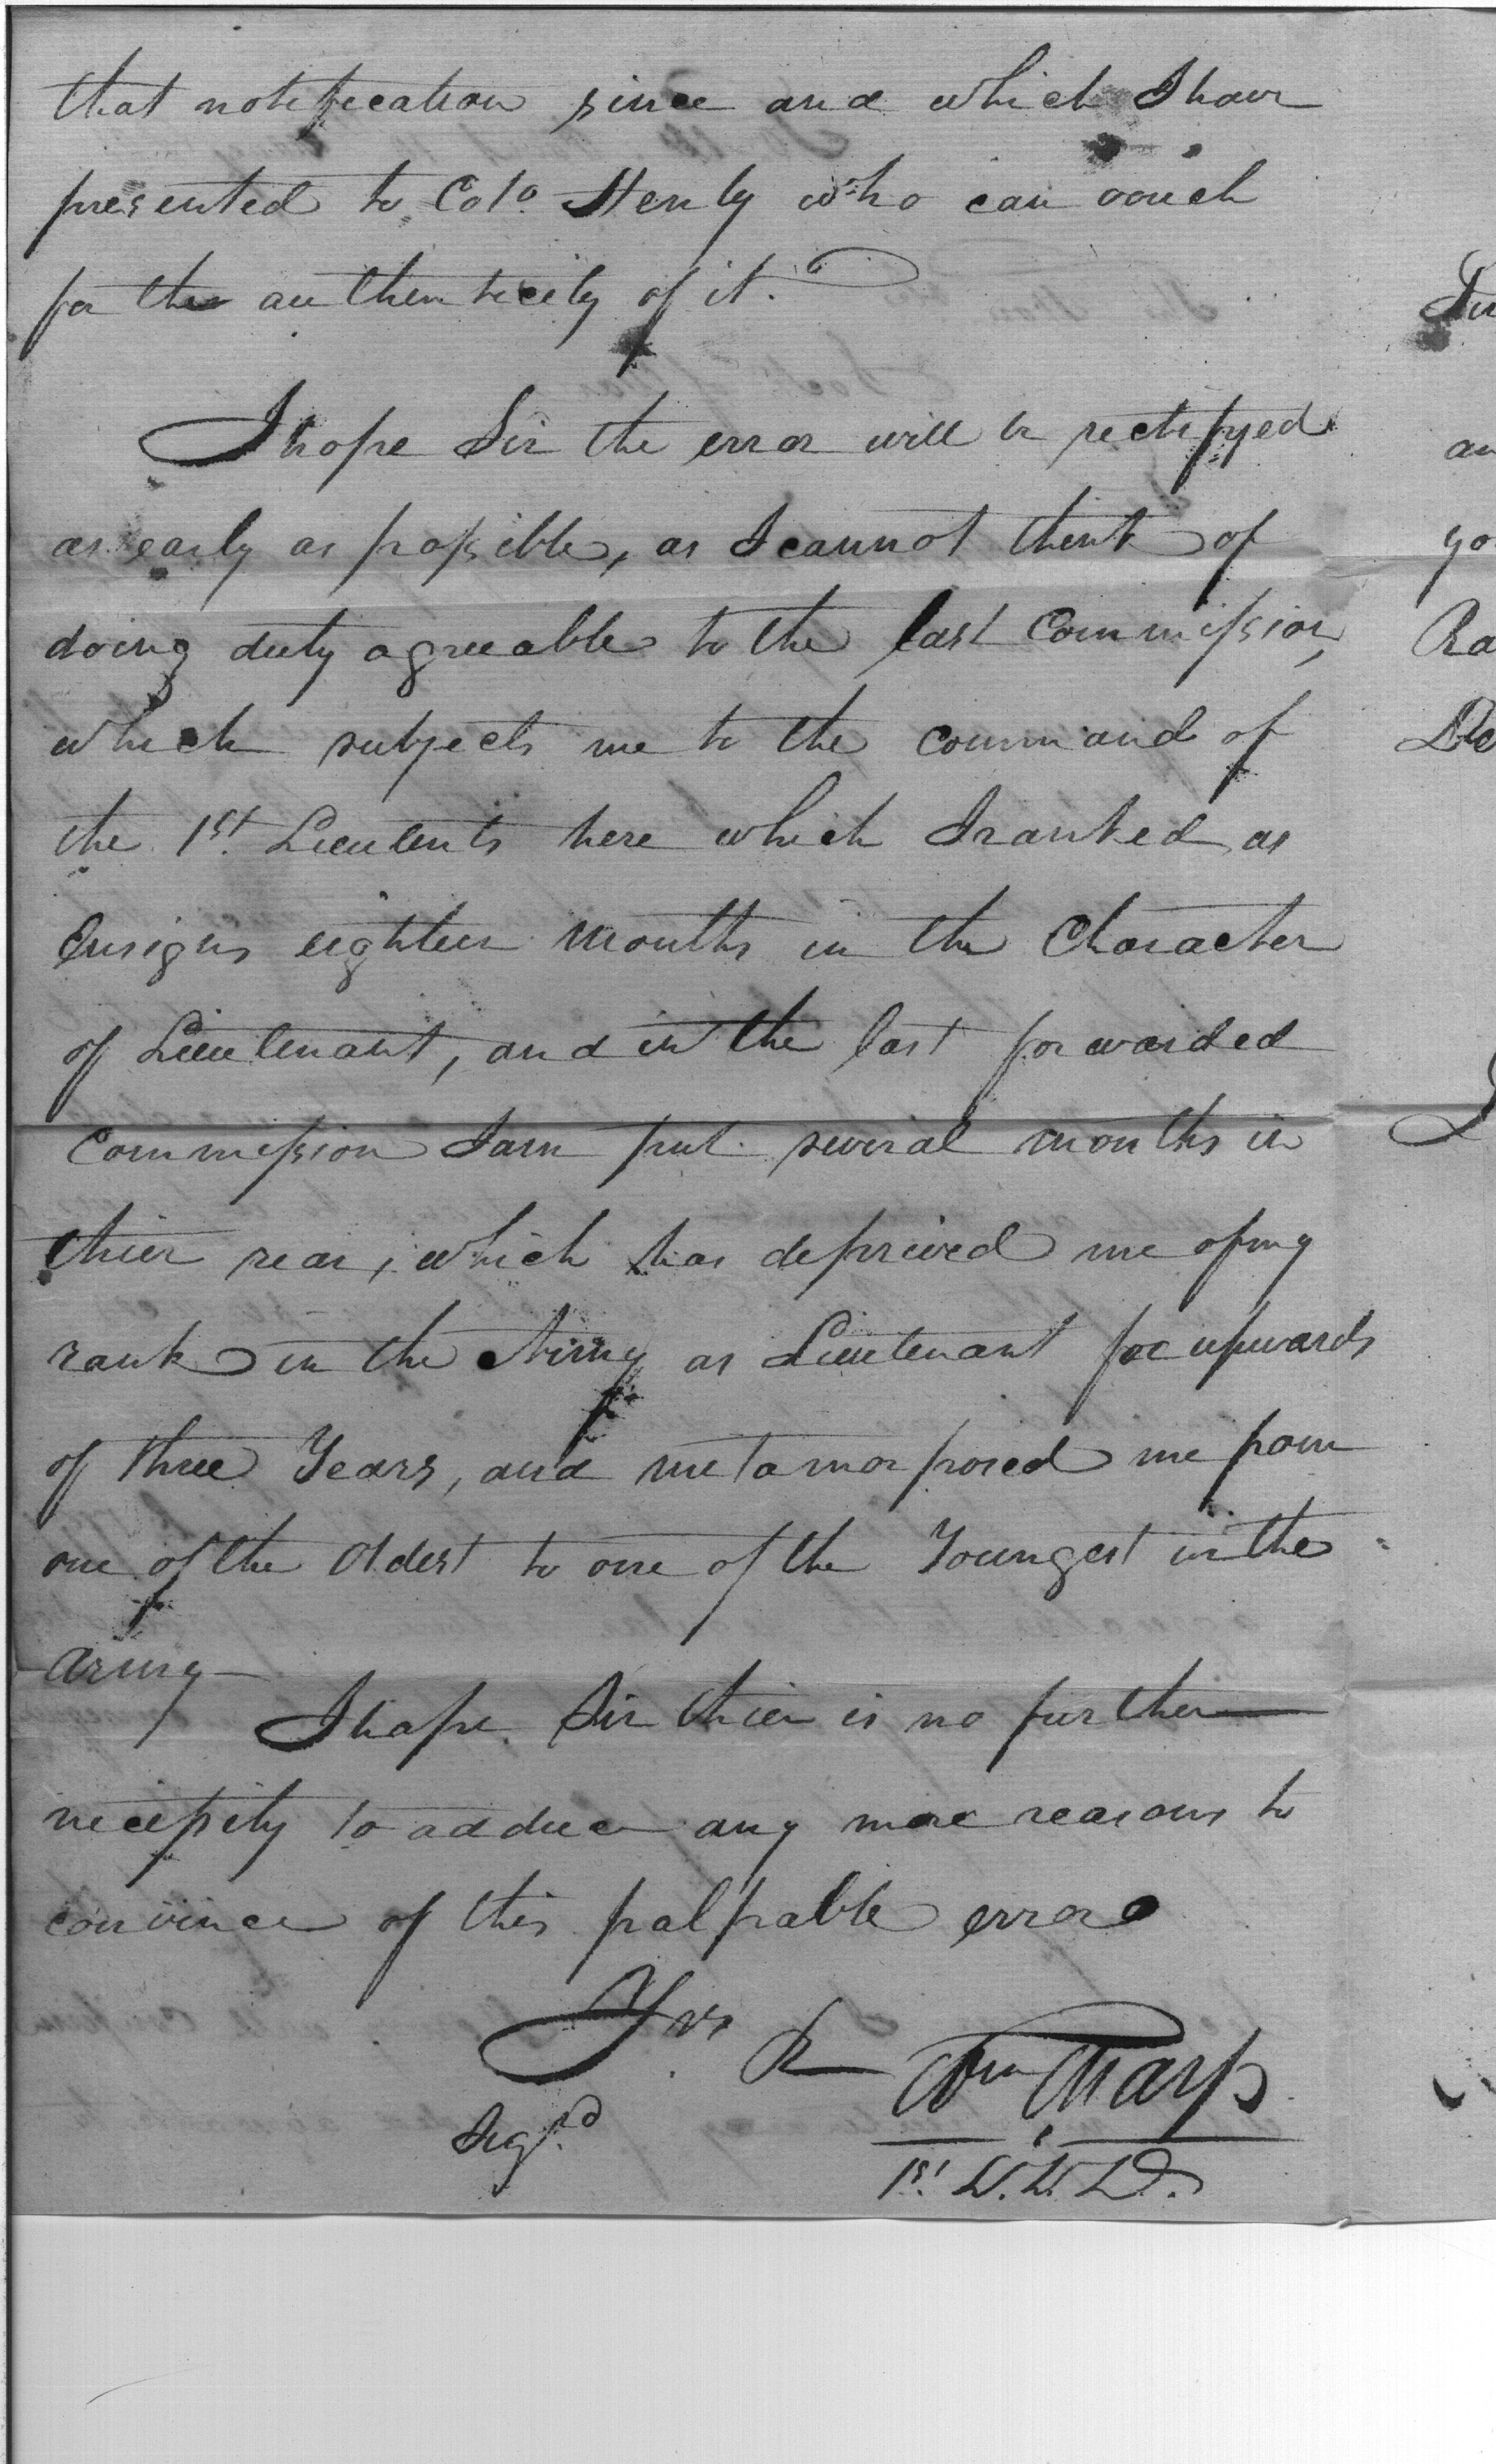 that notification since and which I have
presented to Colo. Henly who can vouch
for the authenticity of it.
I hope Sir the error will be rectifyed
as early as possible, as I cannot think of
doing duty agreeable to the last Commission,
which subjects me to the command of
the 1st. Lieutents here which I ranked as
Ensigns eighteen Months in the Character
of Lieutenant, and in the last forwarded
commission I am put several months in
thier rear, which has deprived me of my
rank in the Army as Lieutenant for upwards
of three Years, and metamorposed me from
one of the Oldest to one of the Youngest in the
Army
I hope Sir thier is no further
necessity to adduce any more reasons to
convince of this palpable error
Yrs &
Sigd. Wm Tharp
1st. L.